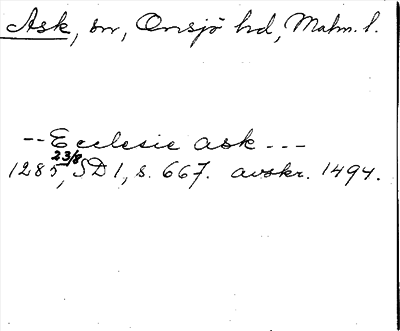 Ask, sn, Onsjö hd, Malm. l.
-- Ecclesie ask ---
1285 23/8, SD 1, s. 667. avskr. 1494.